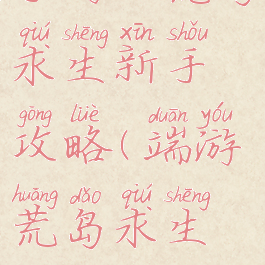 qiú shēng xīn shǒu
求生新手
gōng lüè duān yóu
攻略(端游
huāng dǎo qiú shēng
荒岛求生